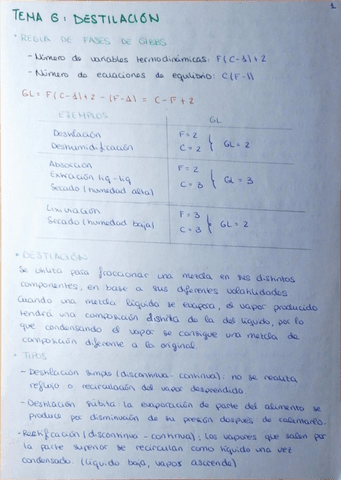 1
TEMA 6: DESTILACIÓN
• REGLA DE FASES DE GIBBS
- Número de variables termodinámicas: F(C-1)+2
- Número de ecuaciones de equilibrio: C(F-1)
GL = F(C-1)+2 - (F-1) = C-F+2
EJEMPLOS GL
Destilación F=2
Deshumidificación C=2 GL=2
Absorción F=2
Extracción líq-líq C=3 GL=3
Secado (humedad alta)
Lixiviación F=3
Secado (humedad baja) C=3 GL=2
• DESTILACIÓN
Se utiliza para fraccionar una mezcla en sus distintos
componentes, en base a sus diferentes volatilidades
Cuando una mezcla líquida se evapora, el vapor producido
tendrá una composición distinta de la del líquido, por lo
que condensando el vapor se consigue una mezcla de
composición diferente a la original.
• TIPOS
- Destilación simple (discontinua - continua): no se realiza
reflujo o recirculación del vapor desprendido.
- Destilación súbita la evaporación de parte del alimento se
produce por disminución de su presión después de calentarlo.
- Rectificación (discontinua - continua): los vapores que salen por
la parte superior se recirculan como líquido una vez
condensado. (líquido baja, vapor asciende)